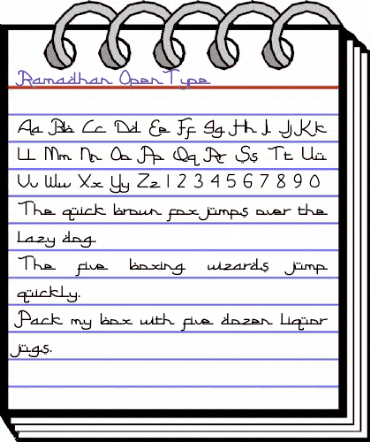 Ramadhan OpenType
Aa Bb Cc Dd Ee Ff Gg Hh Ii Jj Kk
Ll Mm Nn Oo Pp Qq Rr Ss Tt Uu
Vv Ww Xx Yy Zz 1 2 3 4 5 6 7 8 9 0
The quick brown fox jumps over the
Lazy dog.
The five boxing wizards jump
quickly.
Pack my box with five dozen liquor
jugs.